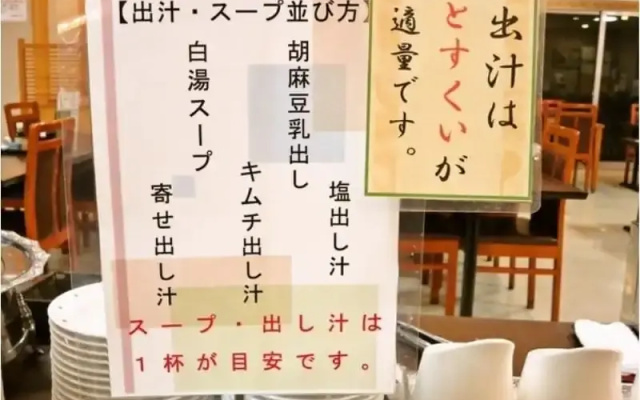 【出汁・スープ並び方】
塩出し汁
胡麻豆乳出し
キムチ出し汁
白湯スープ
寄せ出し汁
スープ・出し汁は
1杯が目安です。
出汁は
とすくいが
適量です。